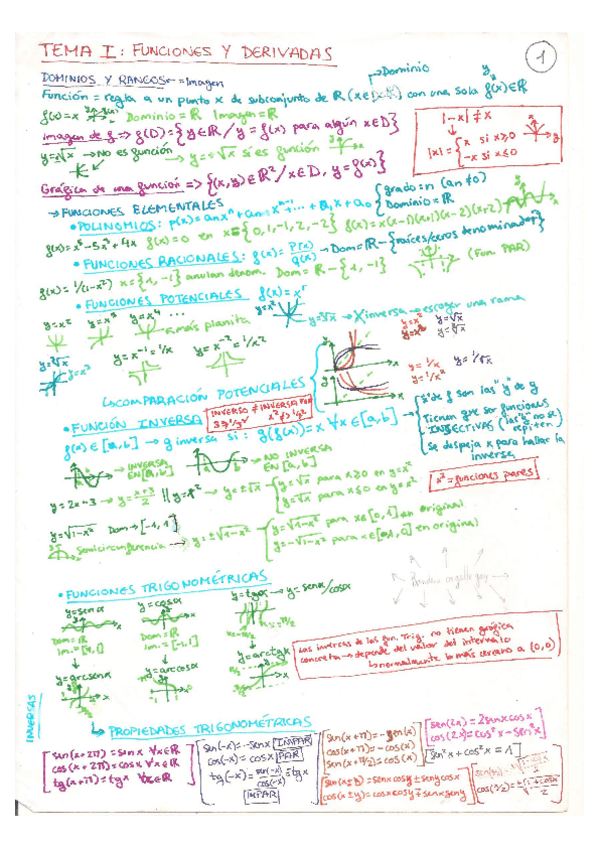 TEMA I: FUNCIONES Y DERIVADAS
1
DOMINIOS Y RANGOS = Imagen
Dominio
Función = regla a un punto x de subconjunto de ℝ (x∈D⊂ℝ) con una sola f(x)∈ℝ
f(x)=x Dominio=ℝ Imagen=ℝ
Imagen de f => f(D)={y∈ℝ / y=f(x) para algún x∈D}
y=±√x → No es función → y=+√x sí es función
|-x| ≠ x
|x| = { x si x≥0
-x si x≤0
Gráfica de una función => {(x,y)∈ℝ²/x∈D, y=f(x)}
→ FUNCIONES ELEMENTALES
• POLINOMIOS: p(x)=aₙxⁿ+aₙ₋₁xⁿ⁻¹+...+a₁x+a₀ { grado=n (aₙ≠0)
Dominio=ℝ
f(x)=x⁵-5x³+4x f(x)=0 en x={0,1,-1,2,-2} f(x)=x(x-1)(x+1)(x-2)(x+2)
• FUNCIONES RACIONALES: f(x)=P(x)/Q(x) → Dom=ℝ-{raíces/ceros denominador}
f(x)=1/(1-x²) x={1,-1} anulan denom. Dom=ℝ-{1,-1} (Fun. PAR)
• FUNCIONES POTENCIALES f(x)=xʳ
y=x² y=x³ y=x⁴ ... más planita
y=x² inversa → escoger una rama
y=x⁻¹=1/x y=x⁻²=1/x²
y=1/x
y=1/x²
y=1/√x
↳ COMPARACIÓN POTENCIALES
• FUNCIÓN INVERSA
INVERSO ≠ INVERSA
f(x)∈[a,b] → g inversa si: g(f(x))=x ∀x∈[a,b]
Tienen que ser funciones
INYECTIVAS (las "y" no se repiten)
se despeja x para hallar la
inversa
→ INVERSA
EN [a,b]
→ NO INVERSA
EN [a,b]
x² = funciones pares
y=2x+3 → y=±√x { y=√x para x≥0 en y=x²
y=√x para x≤0 en y=x²
y=√1-x² Dom → [-1,1]
Semicircunferencia → y=±√1-x² { y=√1-x² para x∈[0,1] en original
y=-√1-x² en original
• FUNCIONES TRIGONOMÉTRICAS
y=senx
y=cosx
y=tgx → y=senx/cosx
Dom=ℝ
Im.=[-1,1]
Dom=ℝ
Im.=[-1,1]
Las inversas de las fun. Trig. no tienen gráfica
concreta → depende del valor del intervalo
↳ normalmente lo más cercano a (0,0)
y=arcsenx
y=arccosx
y=arctgx
INVERSAS
↳ PROPIEDADES TRIGONOMÉTRICAS
sen(x+2π)=senx ∀x∈ℝ
cos(x+2π)=cosx ∀x∈ℝ
tg(x+π)=tgx ∀x∈ℝ
sen(-x)=-senx IMPAR
cos(-x)=cosx PAR
tg(-x)=sen(-x)/cos(-x)=-tgx
IMPAR
sen(x+π)=-sen(x)
cos(x+π)=-cos(x)
sen(x+π/2)=cos(x)
sen(x±y)=senxcosy±senycosx
cos(x±y)=cosxcosy∓senxseny
sen(2x)=2senxcosx
cos(2x)=cos²x-sen²x
sen²x+cos²x=1